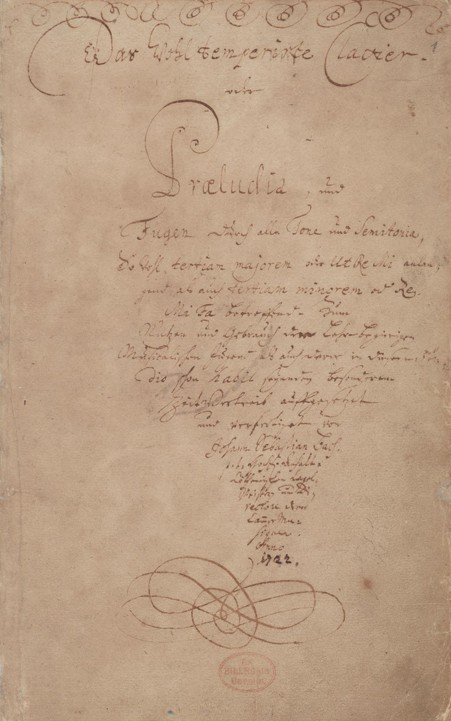 Das Wohl temperirte Clavier.
oder
Præludia, und
Fugen durch alle Tone und Semitonia,
So wohl tertiam majorem oder Ut Re Mi anlan,
gend, als auch tertiam minorem oder Re
Mi Fa betreffend. Zum
Nutzen und Gebrauch der Lehrbegierigen
Musicalischen Jugend als auch derer in diesem stu,
dio schon habil seyenden besonderem
Zeit Vertreib auffgesetzet
und verfertiget von
Johann Sebastian Bach.
p. t. Hochfürstlich
Cöthenischen Capel,
Meistern und Di,
rectore derer
Cammer Mu,
siquen.
Anno
1722.